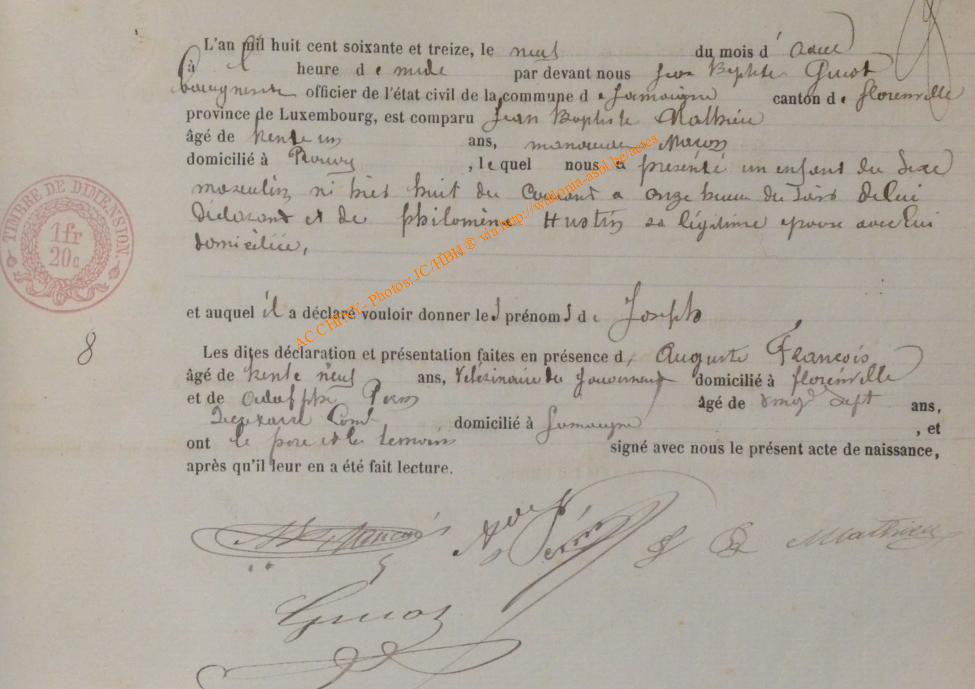 L'an mil huit cent soixante et treize, le neuf du mois d'
à heure de midi par devant nous Jean Baptiste Guiot
Bourgmestre officier de l'état civil de la commune de Jamoigne canton de florenville
province de Luxembourg, est comparu Jean Baptiste Mathieu
âgé de trente un ans, manoeuvre Maçon
domicilié à , lequel nous a présenté un enfant du Sexe
masculin né hier huit du Courant a onze heures du Soir de lui
Déclarant et de philomène Hustin sa légitime épouse avec lui
domiciliée,
et auquel il a déclaré vouloir donner les prénoms de Joseph
8
Les dites déclaration et présentation faites en présence d' Auguste François
âgé de trente neuf ans, Vétérinaire du Gouvernement domicilié à florenville
et de Adolphe âgé de vingt Sept ans,
domicilié à Jamoigne , et
ont le père et les temoins signé avec nous le présent acte de naissance,
après qu'il leur en a été fait lecture.
François J B Mathieu
Guiot
TIMBRE DE DIMENSION.
1fr
20c
AC CHINY - Photos: JC/HBH ® via http://wallonia-asbl.be/actes